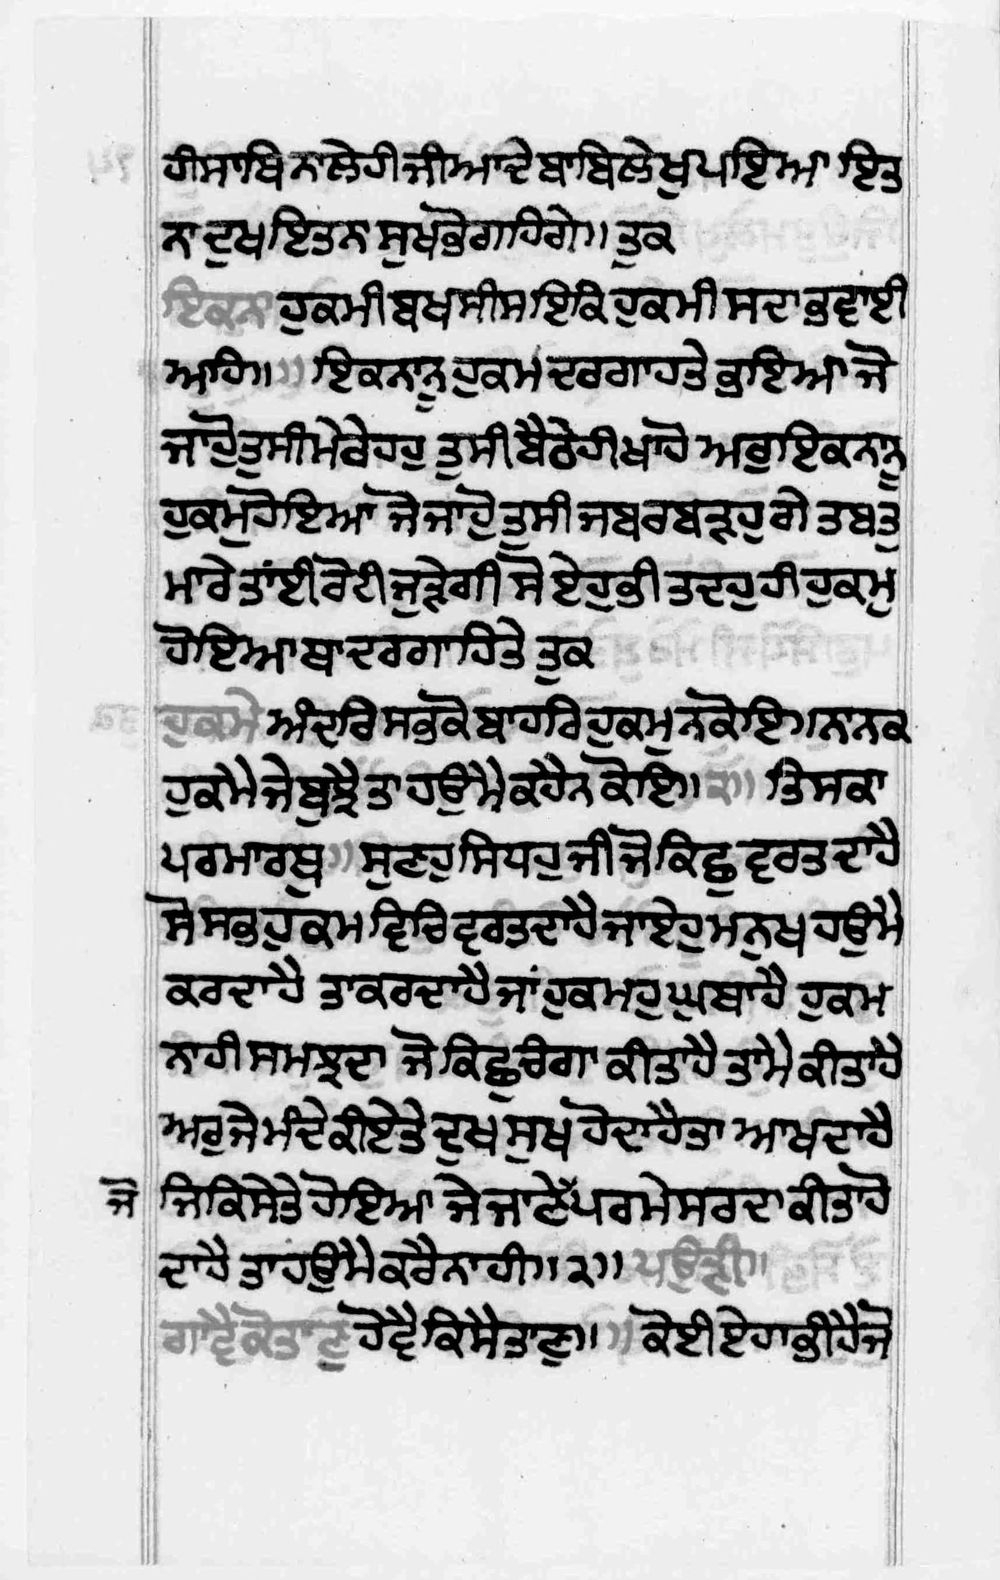 ਹੀ ਸਾਥਿ ਨਾਲੇ ਹੀ ਜੀਆ ਦੇ ਬਾਬਿ ਲੇਖੁ ਪਇਆ ਇਤ
ਨਾ ਦੁਖ ਇਤਨਾ ਸੁਖ ਭੋਗਹਿਗੇ॥ ਤੁਕ
ਇਕਨਾ ਹੁਕਮੀ ਬਖਸੀਸ ਇਕਿ ਹੁਕਮੀ ਸਦਾ ਭਵਾਈ
ਅਹਿ॥ ਇਕਨਾ ਨੂ ਹੁਕਮ ਦਰਗਾਹ ਤੇ ਹੁਇਆ ਜੋ
ਜਾਹੋ ਤੁਸੀ ਮੇਰੇ ਹਹੁ ਤੁਸੀ ਬੈਠੇ ਹੀ ਖਾਹੋ ਅਰੁ ਇਕਨਾ ਨੂ
ਹੁਕਮੁ ਹੋਇਆ ਜੋ ਜਾਹੋ ਤੁਸੀ ਜਬ ਰਬੜਹੁਗੇ ਤਬ ਤੁ
ਮਾਰੇ ਤਾਂਈ ਰੋਟੀ ਜੁੜੇਗੀ ਸੋ ਏਹੁ ਭੀ ਤਦਹੁ ਹੀ ਹੁਕਮੁ
ਹੋਇਆ ਥਾ ਦਰਗਾਹਿ ਤੇ ਤੁਕ
ਹੁਕਮੈ ਅੰਦਰਿ ਸਭੁ ਕੋ ਬਾਹਰਿ ਹੁਕਮੁ ਨ ਕੋਇ॥ ਨਾਨਕ
ਹੁਕਮੈ ਜੇ ਬੁਝੈ ਤਾ ਹਉਮੈ ਕਹੈ ਨ ਕੋਇ॥੨॥ ਤਿਸਕਾ
ਪਰਮਾਰਥੁ॥ ਸੁਣਹੁ ਸਿਧਹੁ ਜੀ ਜੋ ਕਿਛੁ ਵਰਤਦਾ ਹੈ
ਸੋ ਸਭੁ ਹੁਕਮ ਵਿਚਿ ਵਰਤਦਾ ਹੈ ਜਾ ਏਹੁ ਮਨੁਖ ਹਉਮੈ
ਕਰਦਾ ਹੈ ਤਾ ਕਰਦਾ ਹੈ ਜਾਂ ਹੁਕਮਹੁ ਘੁਥਾ ਹੈ ਹੁਕਮ
ਨਾਹੀ ਸਮਝਦਾ ਜੋ ਕਿਛੁ ਚੰਗਾ ਕੀਤਾ ਹੈ ਤਾ ਮੈ ਕੀਤਾ ਹੈ
ਅਰੁ ਜੇ ਮੰਦੇ ਕੀਏ ਤੇ ਦੁਖ ਸੁਖ ਹੋਦਾ ਹੈ ਤਾ ਆਖਦਾ ਹੈ
ਜਿ ਕਿਸੇ ਤੇ ਹੋਇਆ ਜੇ ਜਾਣੇ ਜੋ ਪਰਮੇਸਰ ਦਾ ਕੀਤਾ ਹੋ
ਦਾ ਹੈ ਤਾ ਹਉਮੈ ਕਰੈ ਨਾਹੀ॥੨॥ ਪਉੜੀ॥
ਗਾਵੈ ਕੋ ਤਾਣੁ ਹੋਵੈ ਕਿਸੈ ਤਾਣੁ॥ ਕੋਈ ਏਹਾ ਭੀ ਹੈ ਜੋ